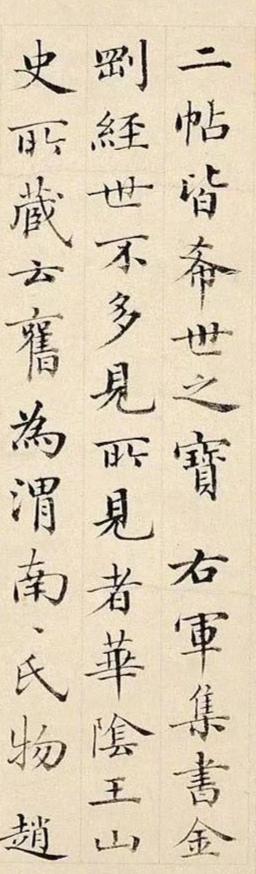 二帖皆希世之寶右軍集書金
剛經世不多見所見者華陰王山
史所藏云舊為渭南南氏物趙